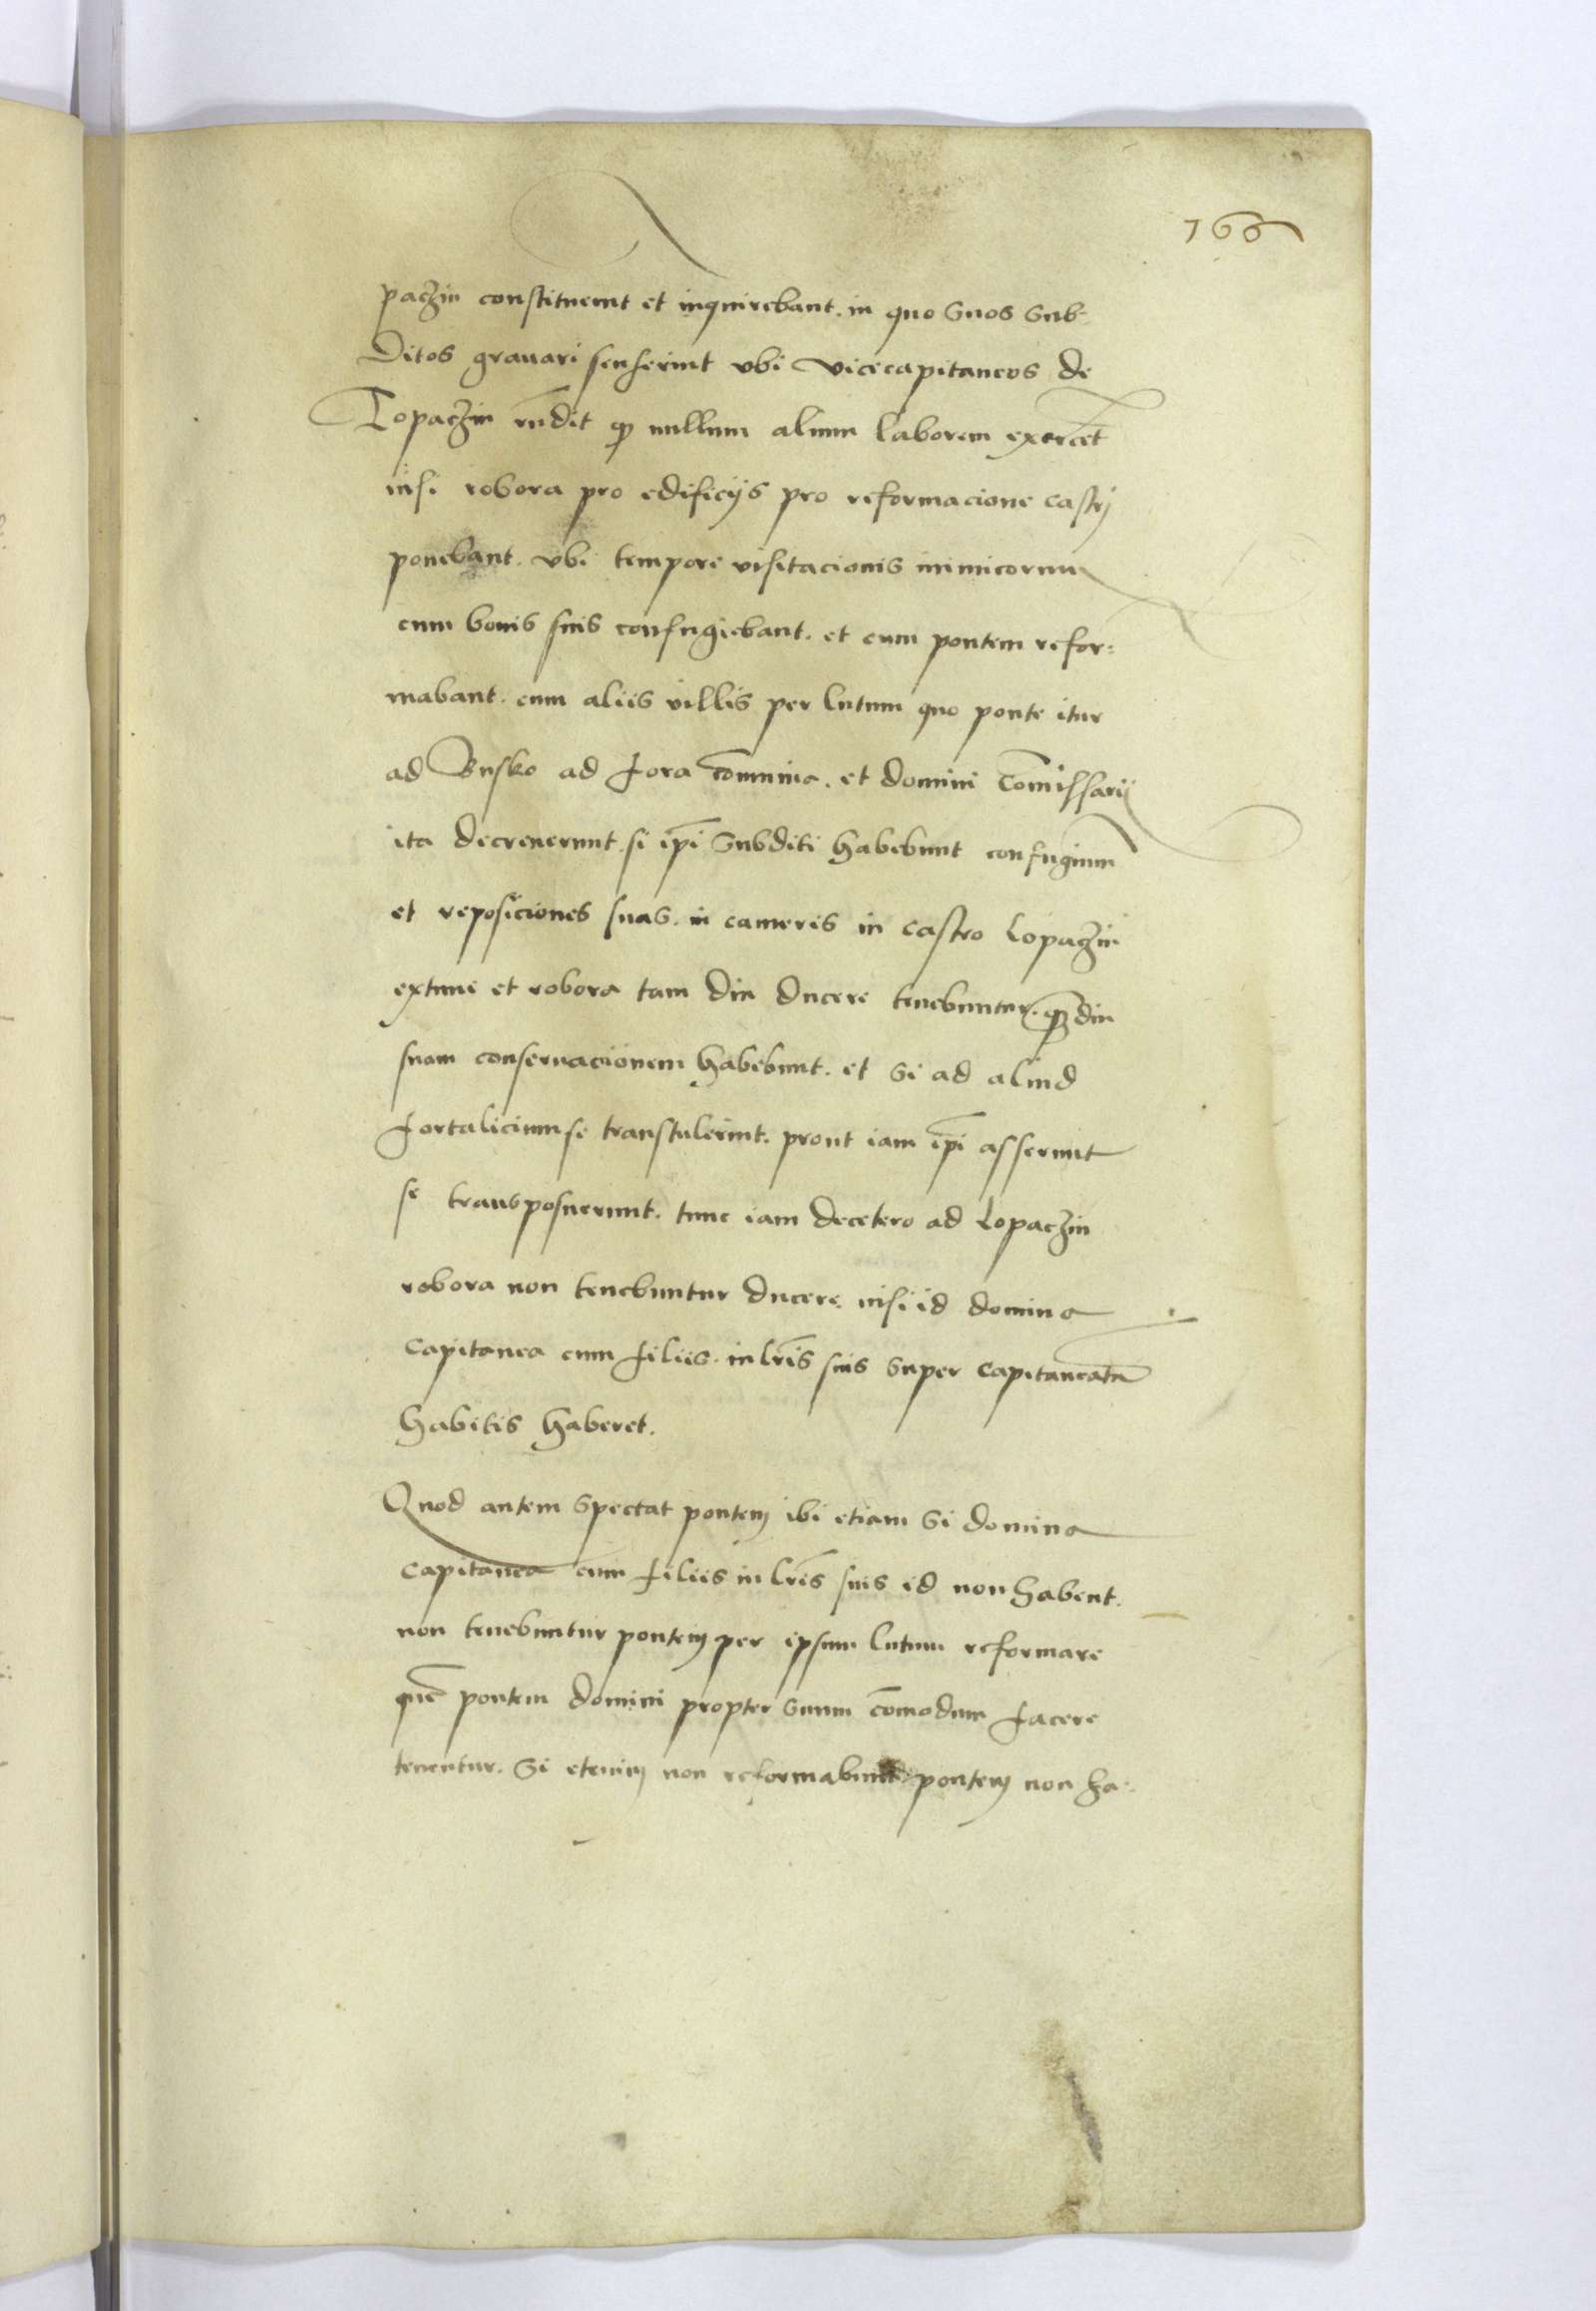 166
paczin constituerunt et inquirebant. in quo suos sub-
ditos gravari senserint ubi vicecapitaneos de
Lopaczin rñdit q nullum alium laborem exercet
nisi robora pro edificijs pro reformacione castrj
ponebant. ubi tempore visitacionis inimicorum
cum bonis suis confugiebant. et cum pontem refor:
mabant. cum aliis villis per lutum quo ponte itur
ad Busko ad fora comunia. et domini Comissarij
ita decreverunt. si ipi subditi habebunt confugium
et reposiciones suas. in cameris in castro Lopaczin
extunc et robora tam diu ducere tenebuntur. q diu
suam conservacionem habebunt. et si ad aliud
fortalicium se transtulerint. prout iam ipi asserunt
se transposuerunt. tunc iam decetero ad Lopaczin
robora non tenebuntur ducere nisi id domina
capitanea cum filiis. in lris suis super capitaneatu
habitis haberet.
Quod autem spectat pontem ibi etiam si domina
capitanea cum filiis in lris suis id non habent.
non tenebuntur pontem per ipsum lutum reformare
que pontem domini propter suum comodum facere
tenentur. Si etenim non reformabunt pontem non ha: